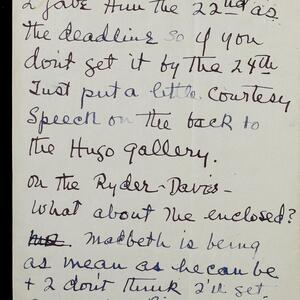 I gave him the 22nd as
the deadline so if you
don't get it by the 24th
Just put a little courtesy
Speech on the back to
the Hugo gallery.
On the Ryder-Davis-
What about the enclosed?
Macbeth is being
as mean as he can be
+ I don't think I'll get